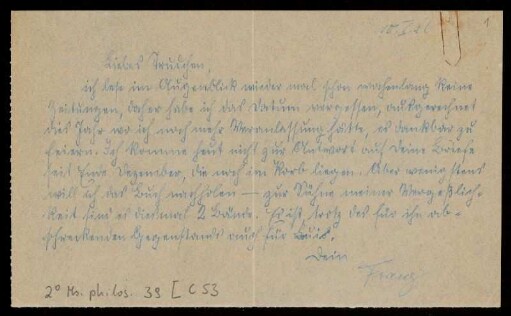 10.I.26
1
Liebes Trudchen,
ich lese im Augenblick wieder mal schon wochenlang keine
Zeitungen, daher habe ich das Datum vergessen, ausgerechnet
dies Jahr wo ich noch mehr Veranlassung hätte, es dankbar zu
feiern. Ich komme heut nicht zur Antwort auf deine Briefe
seit Ende Dezember, die noch im Korb liegen. Aber wenigstens
will ich das Buch nachholen — zur Sühne meiner Vergeßlich-
keit sind es diesmal 2 Bände. Es ist, trotz des für ihn ab-
schreckenden Gegenstands auch für
Dein
Franz
2° Ms. philos. 39 [C 53